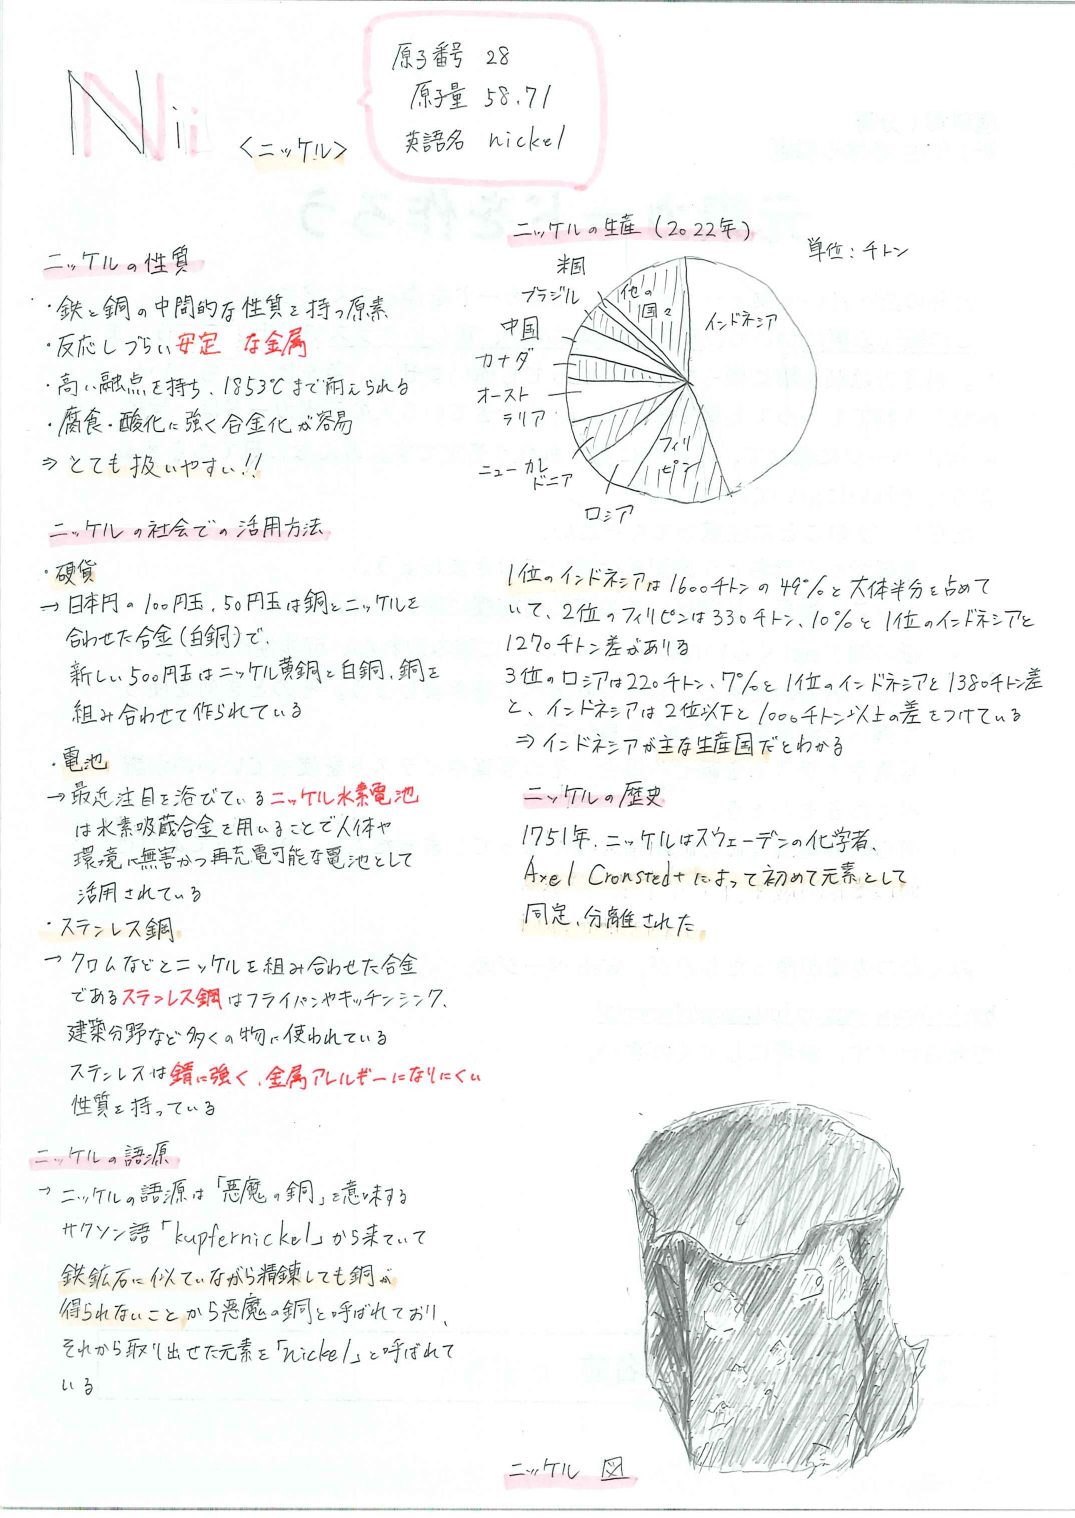 Ni
<ニッケル>
原子番号 28
原子量 58.71
英語名 nickel
ニッケルの性質
・鉄と銅の中間的な性質を持つ原素
・反応しづらい安定 な金属
・高い融点を持ち、1853℃まで耐えられる
・腐食・酸化に強く合金化が容易
⇒ とても扱いやすい!!
ニッケルの社会での活用方法
・硬貨
→ 日本円の100円玉、50円玉は銅とニッケルを
合わせた合金(白銅)で、
新しい500円玉はニッケル黄銅と白銅、銅を
組み合わせて作られている
・電池
→ 最近注目を浴びているニッケル水素電池
は水素吸蔵合金を用いることで人体や
環境に無害かつ再充電可能な電池として
活用されている
・ステンレス鋼
→ クロムなどとニッケルを組み合わせた合金
であるステンレス鋼はフライパンやキッチンシンク、
建築分野など多くの物に使われている
ステンレスは錆に強く、金属アレルギーになりにくい
性質を持っている
ニッケルの語源
→ ニッケルの語源は「悪魔の銅」を意味する
サクソン語「kupfernickel」から来ていて
鉄鉱石に似ていながら精錬しても銅が
得られないことから悪魔の銅と呼ばれており、
それから取り出せた元素を「nickel」と呼ばれて
いる
ニッケルの生産(2022年)
単位:チトン
米国
ブラジル
中国
カナダ
オースト
ラリア
ニューカレ
ドニア
ロシア
フィリ
ピン
インドネシア
他の
国々
1位のインドネシアは1600チトンの49%と大体半分を占めて
いて、2位のフィリピンは330チトン、10%と1位のインドネシアと
1270チトン差がありる
3位のロシアは220チトン、7%と1位のインドネシアと1380チトン差
と、インドネシアは2位以下と1000チトン以上の差をつけている
⇒ インドネシアが主な生産国だとわかる
ニッケルの歴史
1751年、ニッケルはスウェーデンの化学者、
Axel Cronstedtによって初めて元素として
同定、分離された
ニッケル 図